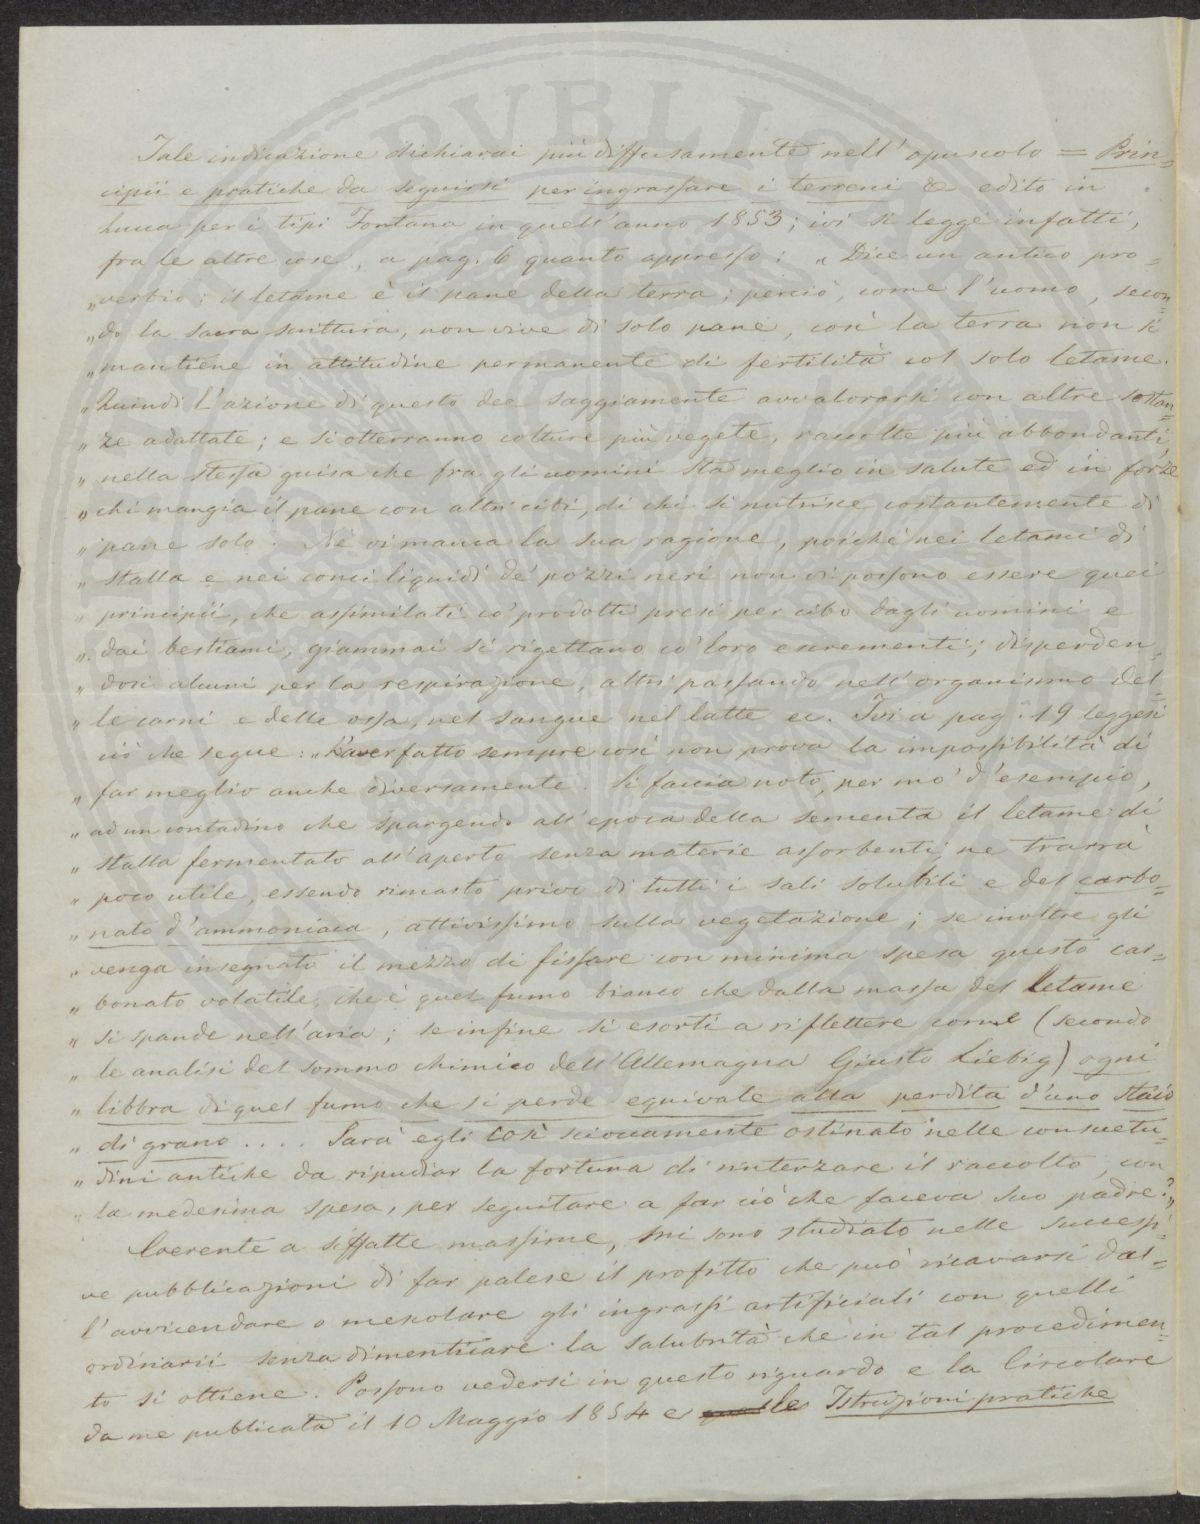 Tale indicazione dichiarai più diffusamente nell'opuscolo = Prin=
cipii e pratiche da seguirsi per ingrassare i terreni & edito in
Lucca per i tipi Fontana in quell'anno 1853; ivi si legge infatti,
fra le altre cose, a pag. 6 quanto appresso: „ Dice un antico pro=
„ verbio: il letame è il pane della terra; perciò, come l'uomo, secon=
„ do la sacra scrittura, non vive di solo pane, così la terra non si
„ mantiene in attitudine permanente di fertilità col solo letame.
„ Quindi l'azione di questo dee saggiamente avvalorarsi con altre sostan=
„ ze adattate; e si otterranno colture più vegete, raccolte più abbondanti,
„ nella stessa guisa che fra gli uomini sta meglio in salute ed in forze
„ chi mangia il pane con altri cibi, di chi si nutrisce costantemente di
„ pane solo. Nè vi manca la sua ragione, poichè nei letami di
„ stalla e nei conci liquidi de' pozzi neri non vi possono essere quei
„ principii, che assimilati co' prodotti presi per cibo dagli uomini e
„ dai bestiami, giammai si rigettano co' loro escrementi; disperden=
„ dosi alcuni per la respirazione, altri passando nell'organismo del=
„ le carni e delle ossa, nel sangue nel latte ec. Ivi a pag. 19 leggesi
ciò che segue: „ L'aver fatto sempre così non prova la impossibilità di
„ far meglio anche diversamente. Si faccia noto, per mo' d'esempio,
„ ad un contadino che spargendo all'epoca della sementa il letame di
„ stalla fermentato all'aperto senza materie assorbenti, ne trarrà
„ poco utile, essendo rimasto privo di tutti i sali solubili e del carbo=
„ nato d'ammoniaca, attivissimo sulla vegetazione; se inoltre gli
„ venga insegnato il mezzo di fissare con minima spesa questo car=
„ bonato volatile, che è quel fumo bianco che dalla massa del letame
„ si spande nell'aria; se infine si esorti a riflettere come (secondo
„ le analisi del sommo chimico dell'Allemagna Giusto Liebig) ogni
„ libbra di quel fumo che si perde equivale alla perdita d'uno staio
„ di grano .... Sarà egli così scioccamente ostinato nelle consuetu=
„ dini antiche da ripudiar la fortuna di rinterzare il raccolto, con
„ la medesima spesa, per seguitare a far ciò che faceva suo padre?„
Coerente a siffatte massime, mi sono studiato nelle successi=
ve pubblicazioni di far palese il profitto che può ricavarsi dal=
l'avvicendare o mescolare gli ingrassi artificiali con quelli
ordinarii senza dimenticare la salubrità che in tal procedimen=
to si ottiene. Possono vedersi in questo riguardo e la Circolare
da me publicata il 10 Maggio 1854 e le Istruzioni pratiche
PVBLICA